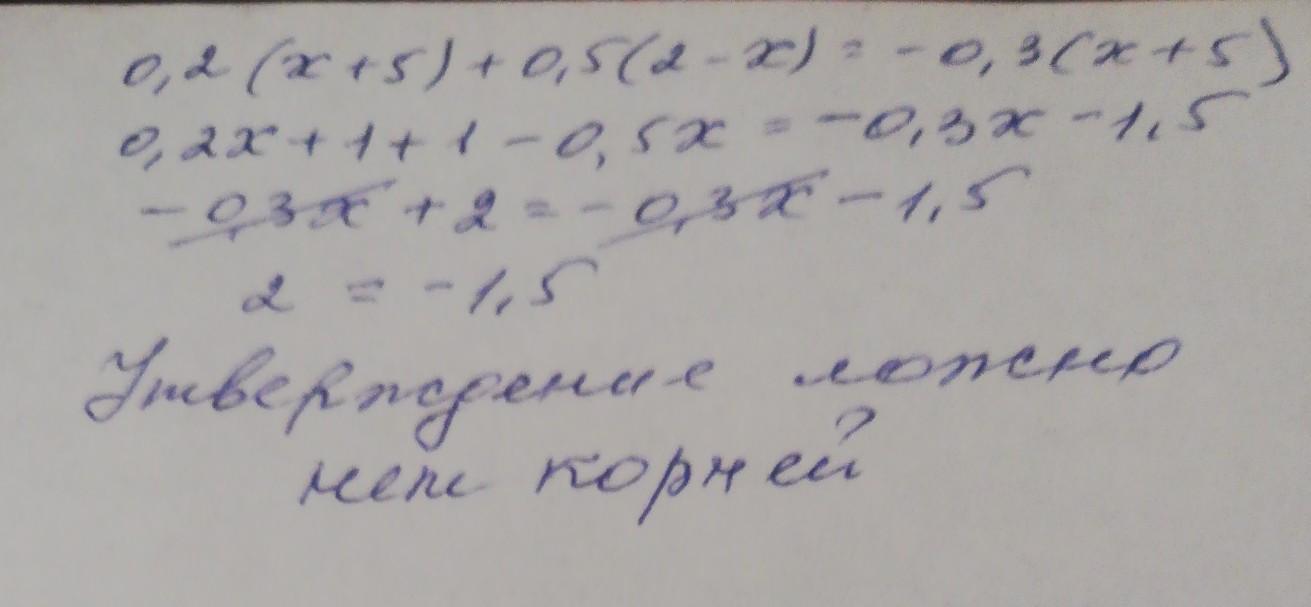 0,2(x+5)+0,5(2-x)=-0,3(x+5)
0,2x+1+1-0,5x=-0,3x-1,5
-0,3x+2=-0,3x-1,5
2=-1,5
Утверждение ложно
нет корней